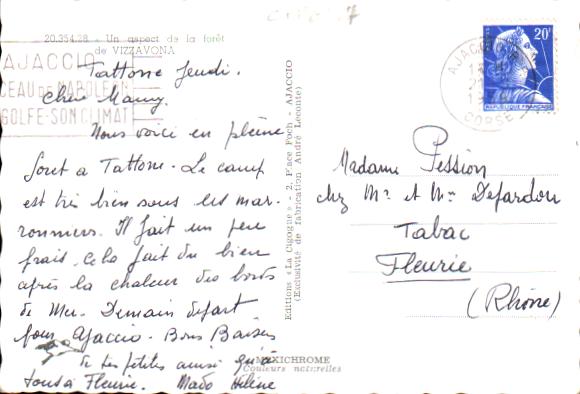 20.354.28 - Un aspect de la forêt
de VIZZAVONA
AJACCIO
CEAU DE NAPOLEON
GOLFE-SON CLIMAT
Tattone Jeudi.
Chère Mamy.
Nous voici en pleine
foret a Tattone. Le camp
est très bien sous les mar
ronniers. Il fait un peu
frais. Cela fait du bien
après la chaleur des bords
de Mer. Demain départ
pour Ajaccio. Bons Baisers
de tes petites ainsi qu'à
tous à Fleurie. Mado Hélène
Editions « La Cigogne » - 2, Place Foch - AJACCIO
(Exclusivité de fabrication André Leconte)
MEXICHROME
Couleurs naturelles
20F
REPUBLIQUE FRANÇAISE
AJACCIO
CORSE
Madame Pession
chez Mr et Mme Dejardon
Tabac
Fleurie
(Rhône)